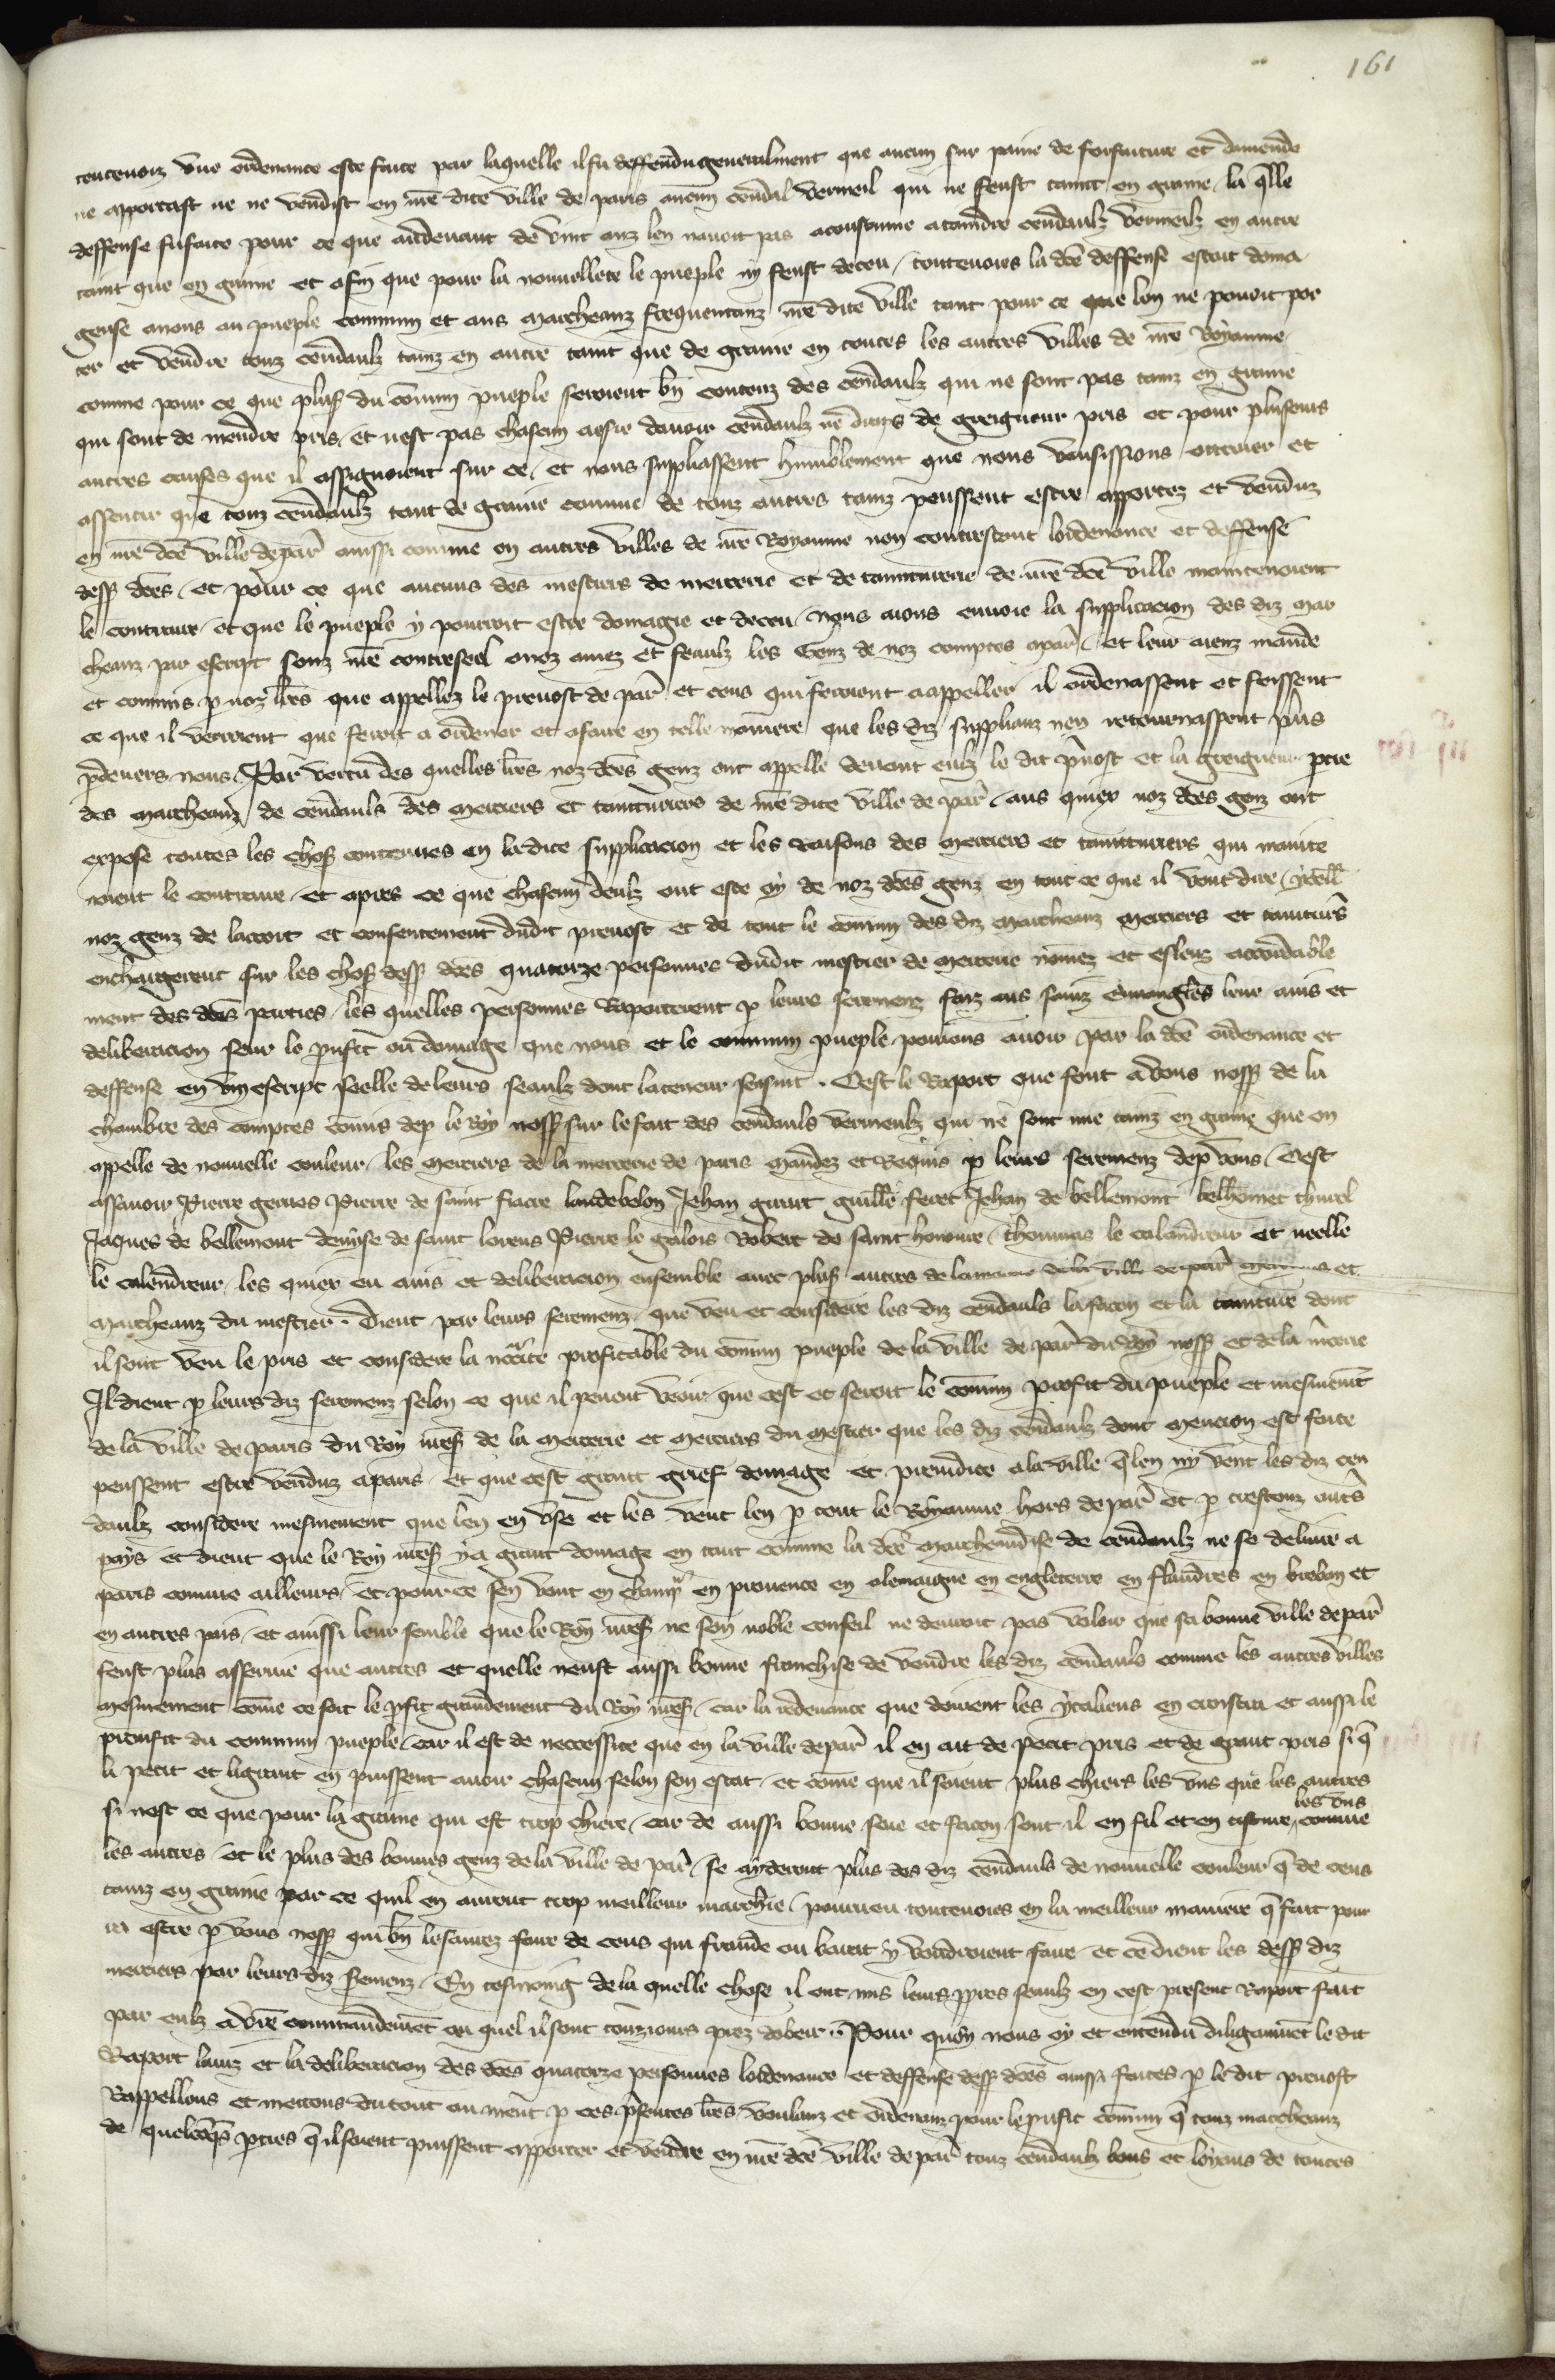 161
toutevoiz une ordenance este faite par laquelle il fu deffendu generalment que aucun sur paine de forfaiture et damende
ne apportast ne ne vendist en nre dite ville de paris aucun cendal vermeil qui ne feust taint en graine la qlle
deffense fu faite pour ce que audevant de vint anz len navoit pas acoustume a taindre cendaulz vermeilz en autre
taint que en graine et afin que pour la nouvellete le pueple ny feust deceu toutevoies la dce deffense estoit doma
geuse a nous au pueple commun et aus marcheanz frequentanz nre dite ville tant pour ce que lon ne povoit por
ter et vendre touz cendaulz tainz en autre taint que de graine en toutes les autres villes de nre Royaume
comme pour ce que plus du comun pueple seroient bn contenz des cendaulz qui ne sont pas tainz en graine
qui sont de mendre pris et nest pas chascun aesie davoir cendaulz ne draps de greigneur pris et pour plusieurs
autres causes que il assignoient sur ce et nous suppliassent humblement que nous vousissions ottroier et
assentir que touz cendaulz tant de graine comme de touz autres tainz peussent estre apportez et venduz
en nre dce ville de par aussi comme en autres villes de nre Royaume non contrestant lordenance et deffense
dess dces et pour ce que aucuns des mestiers de mercerie et de tainturerie de nre dce ville maintenoient
le contraire et que le pueple y pourroit estre domagie et deceu nous aions envoie la supplicacion des diz mar
cheanz par escript souz nre contreseel a noz amez et feaulz les Genz de noz comptes a par et leur aienz mande
et commis p noz lres que appellez le prevost de par et ceus qui feroient a appeller il ordenassent et feissent
ce que il verroient que seroit a ordener et a faire en telle maniere que les diz supplianz nen retournassent plus
pdevers nous Par vertu des quelles lres noz dces genz ont appelle devant eulz le dit pvost et la greigneur ptie
des marcheanz de cendauls des merciers et tainturiers de nre dite ville de par aus quiex noz dces genz ont
expose toutes les choses contenues en la dite supplicacion et les raisons des merciers et tainturiers qui mainte
noient le contraire et apres ce que chascun deulz ont este oy de noz dces genz en tout ce que il vout dire ycell
noz genz de lacort et consentement dudit prevost et de tout le comun des diz marcheanz merciers et tainturs
enchargerent sur les choses dess dces quatorze personnes dudit mestier de mercerie nomez et esleuz accordable
ment des dces parties les quelles personnes raporterent p leurs seremenz faiz aus sainz euvangiles leur avis et
deliberacion seur le pufit ou domage que nous et le commun pueple pourions avoir par la dce ordenance et
deffense en un escript seelle de leurs seaulz dont la teneur sensuit. Cest le Raport que font a vous noss de la
chambre des comptes comis dep le Roy noss sur le fait des cendauls vermeulz qui ne sont mie tainz en graine que on
appelle de nouvelle couleur les merciers de la mercerie de paris mandez et Requis p leurs seremenz dep vous Cest
assavoir Pierre gencies Pierre de saint fiacre landebelon Jehan girart guille feret Jehan de bellemont belhomet thurel
Jaques de bellemont denyse de saint lorens Pierre le galois Robert de saint honoure thommas le calendreur et neelle
le calendreur les quiex eu avis et deliberacion ensemble avec plus autres de la mercerie de la ville de par merciers et
marcheanz du mestier. Dient par leurs seremenz que veu et considere les diz cendauls la facon et la tainture dont
il sont veu le pris et considere la necessite profitable du comun pueple de la ville de par du roy noss et de la mcerie
Il dient p leurs diz seremenz selon ce que il pevent veoir que cest et seroit le comun profit du pueple et mesmemt
de la ville de paris du Roy nres de la mercerie et merciers du mestier que les diz cendaulz dont mencion est faite
peussent estre venduz a paris et que cest grant grief domage et preiudice a la ville q len ny vent les diz cen
daulz considere mesmement que len en use et les vent len p tout le Royaume hors de par et p trestouz auts
pays et dient que le Roy nres y a grant domage en tant comme la dce marchandise de cendaulz ne se delivre a
paris comme ailleurs et pour ce sen vont en champ en provence en alemaigne en engleterre en flandres en breban et
en autres pais et aussi leur semble que le Roy nres ne son noble conseil ne devroit pas voloir que sa bonne ville de par
feust plus asservie que autres et quelle neust aussi bonne franchise de vendre les diz cendauls comme les autres villes
mesmement come ce soit le pfit grandement du Roy nres car la redevance que doivent les ytaliens en croistra et aussi le
proufit du commun pueple car il est de neccessite que en la ville de par il en ait de petit pris et de grant pris si q
li petit et li grant en puissent avoir chascun selon son estat et come que il soient plus chiers les uns que les autres
si nest ce que pour la graine qui est trop chiere car de aussi bonne soie et facon sont il en fil et en tisture les uns comme
les autres et le plus des bonnes genz de la ville de par se aideront plus des diz cendauls de nouvelle couleur q de ceus
tainz en graine par ce quil en auront trop meilleur marchie pourveu toutevoies en la meilleur maniere q fait pour
ra estre p vous noss qui bn le saurez faire de ceus qui fraude ou barat y voudroient faire et ce dient les dess diz
merciers par leurs diz sermenz En tesmoing de la quelle chose il ont mis leurs ppres seaulz en cest present Raport fait
par eulz a vre commandemet ou quel il sont touziours prez dobeir. Pour quoy nous oy et entendu diligamment le dit
Raport lavis et la deliberacion des dces quatorze personnes lordenance et deffense dess dces aussi faites p le dit prevost
Rappellons et mettons du tout au nient p ces psentes lres voulanz et ordenanz pour le pufit comun q touz marcheanz
de quelcqs pties q il soient puissent apporter et vendre en nre dce ville de par touz cendaulz bons et loyaus de toutes